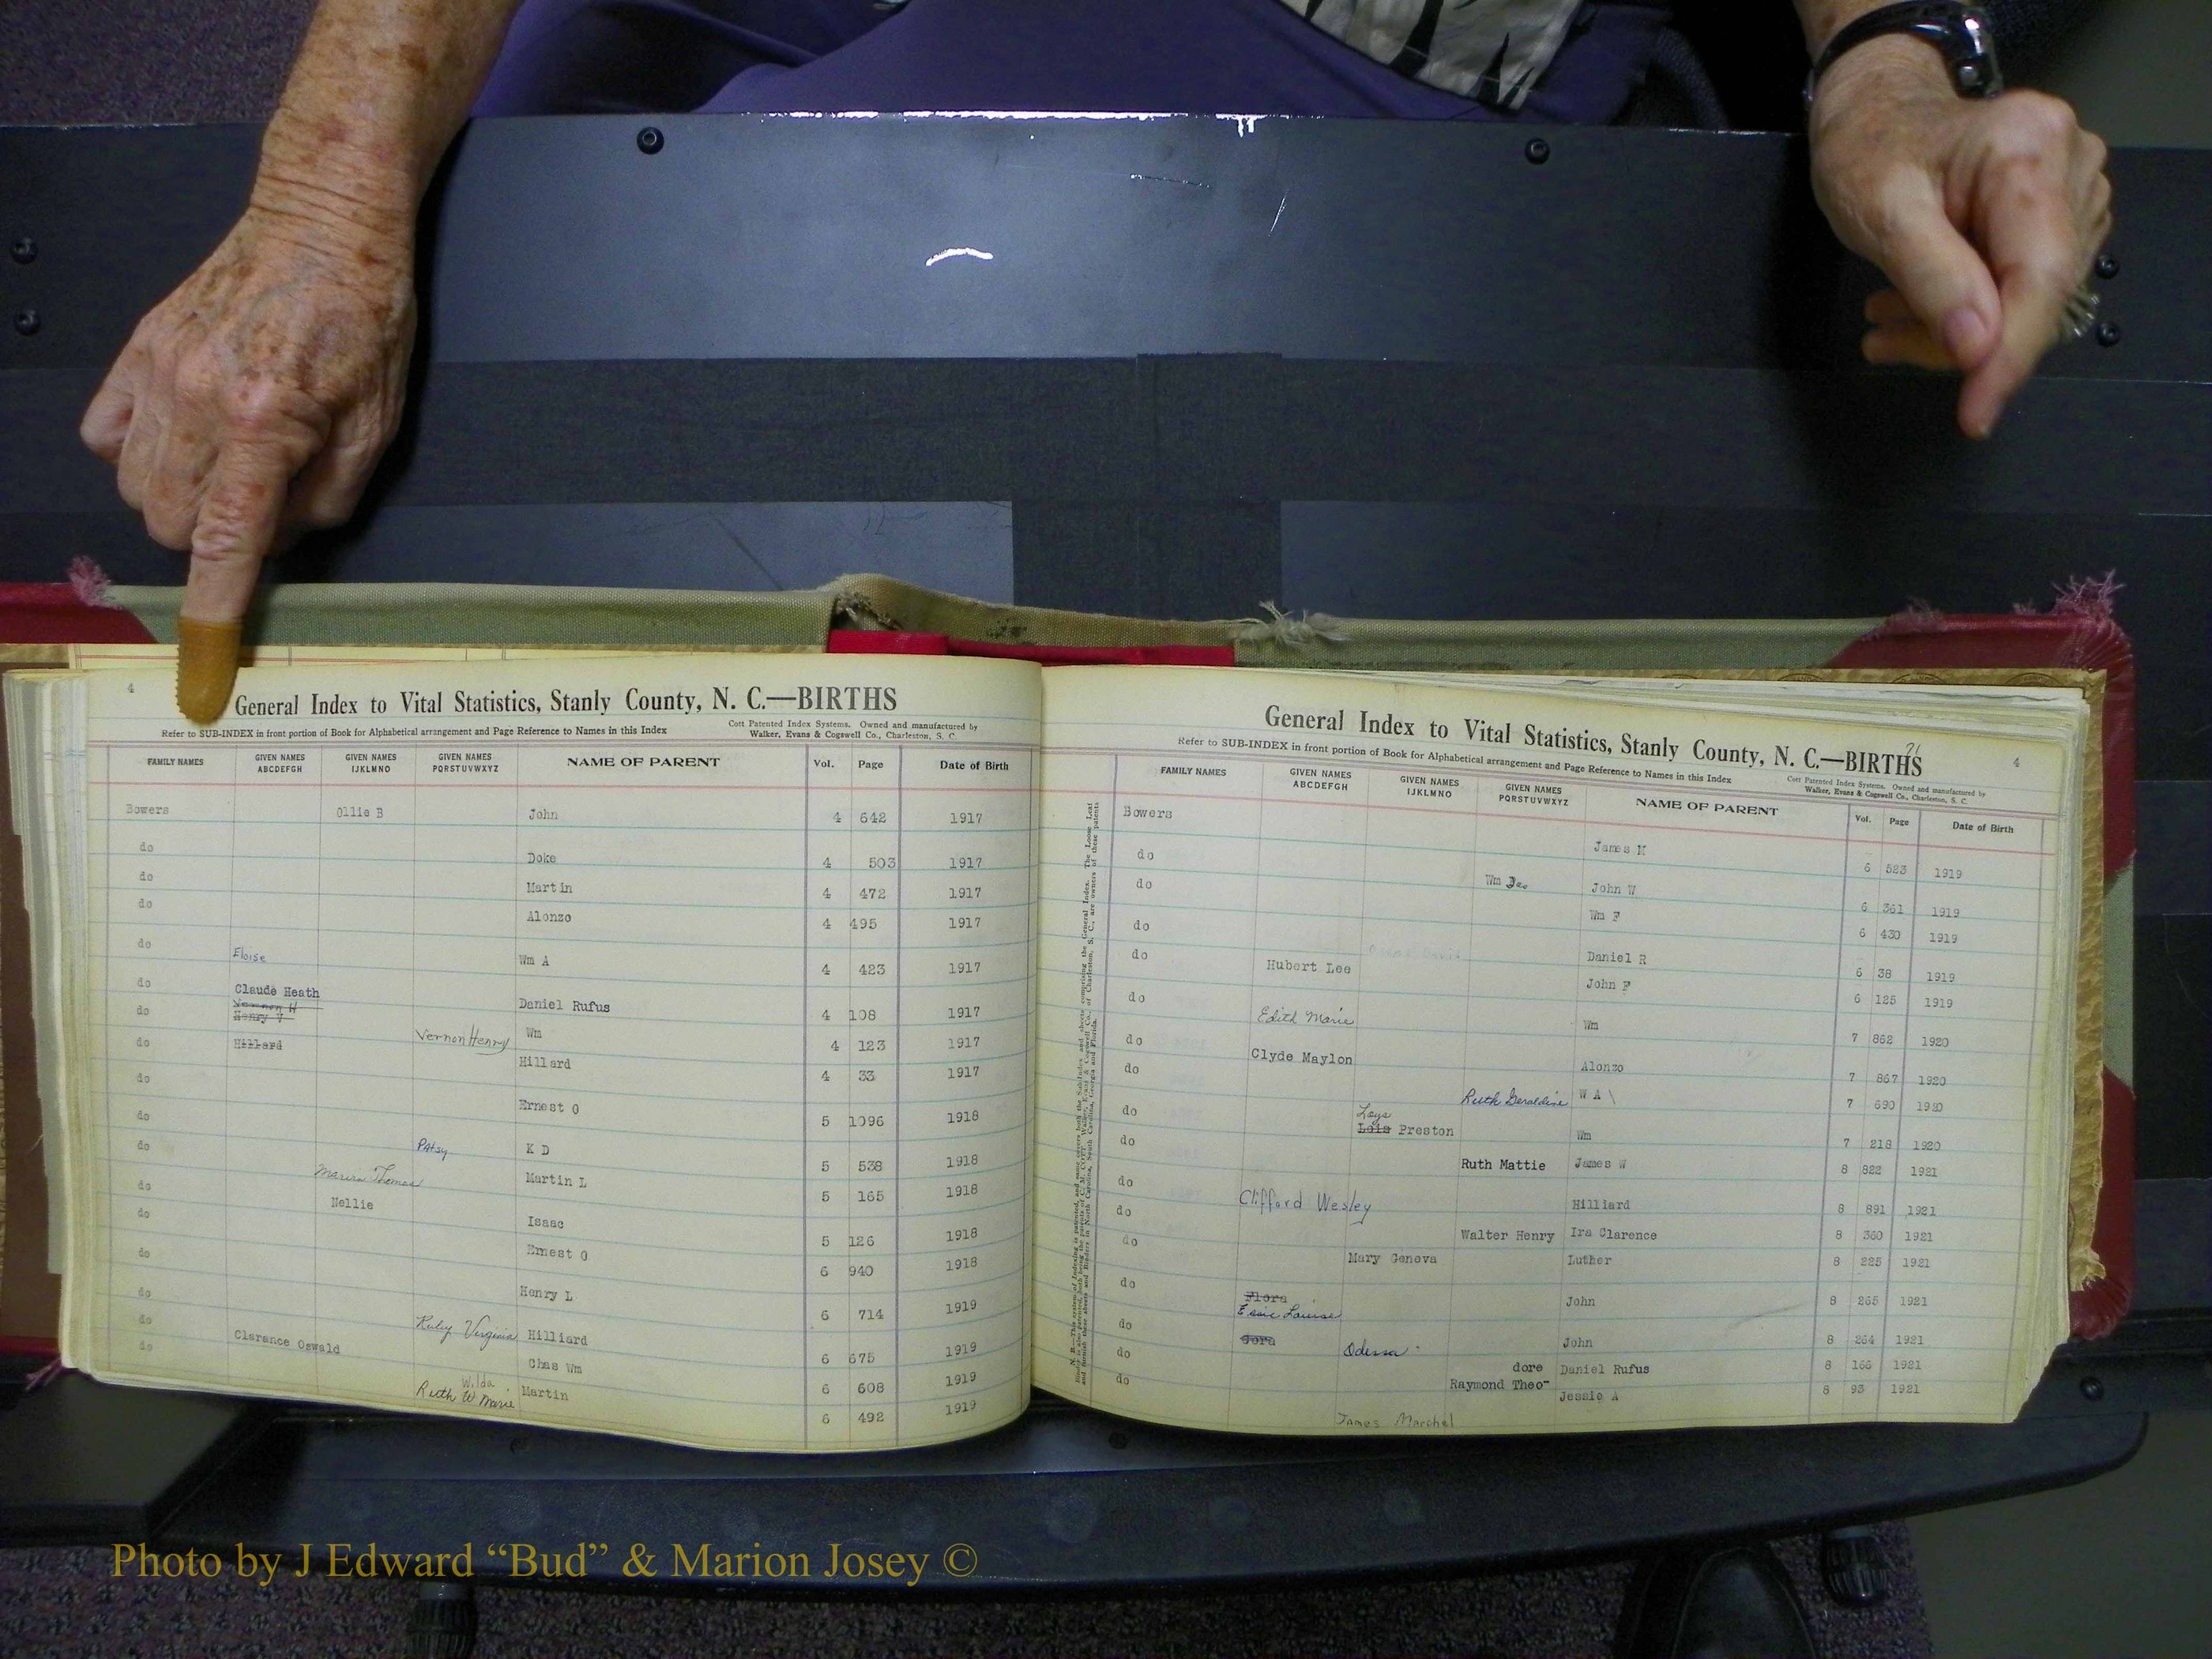 4
General Index to Vital Statistics, Stanly County, N. C.—BIRTHS
Refer to SUB-INDEX in front portion of Book for Alphabetical arrangement and Page Reference to Names in this Index
Cott Patented Index Systems. Owned and manufactured by
Walker, Evans & Cogswell Co., Charleston, S. C.
FAMILY NAMES GIVEN NAMES ABCDEFGH GIVEN NAMES IJKLMNO GIVEN NAMES PQRSTUVWXYZ NAME OF PARENT Vol. Page Date of Birth
Bowers Ollie B John 4 642 1917
do Doke 4 503 1917
do Martin 4 472 1917
do Alonzo 4 495 1917
do Eloise Wm A 4 423 1917
do Claude Heath Daniel Rufus 4 108 1917
do Vernon H Henry V Vernon Henry Wm 4 123 1917
do Hillard Hillard 4 33 1917
do Ernest O 5 1096 1918
do Patsy K D 5 538 1918
do Thomas Martin L 5 165 1918
do Nellie Isaac 5 126 1918
do Ernest O 6 940 1918
do Henry L 6 714 1919
do Ruby Virginia Hilliard 6 675 1919
do Clarance Oswald Chas Wm 6 608 1919
do Wilda Ruth W Marie Martin 6 492 1919
General Index to Vital Statistics, Stanly County, N. C.—BIRTHS
4
Refer to SUB-INDEX in front portion of Book for Alphabetical arrangement and Page Reference to Names in this Index
Cott Patented Index Systems. Owned and manufactured by
Walker, Evans & Cogswell Co., Charleston, S. C.
FAMILY NAMES GIVEN NAMES ABCDEFGH GIVEN NAMES IJKLMNO GIVEN NAMES PQRSTUVWXYZ NAME OF PARENT Vol. Page Date of Birth
Bowers James M 6 523 1919
do Wm John W 6 361 1919
do Wm F 6 430 1919
do Daniel R 6 38 1919
do Hubert Lee John F 6 125 1919
do Edith Marie Wm 7 862 1920
do Clyde Maylon Alonzo 7 867 1920
do Ruth Geraldine W A 7 690 1920
do Loys Lois Preston Wm 7 218 1920
do Ruth Mattie James W 8 822 1921
do Clifford Wesley Hilliard 8 891 1921
do Walter Henry Ira Clarence 8 360 1921
do Mary Geneva Luther 8 225 1921
do Flora Essie Louise John 8 265 1921
do Cora Odessa John 8 264 1921
do dore Raymond Theo- Daniel Rufus 8 166 1921
do James Marchel Jessie A 8 93 1921
Photo by J Edward “Bud” & Marion Josey ©